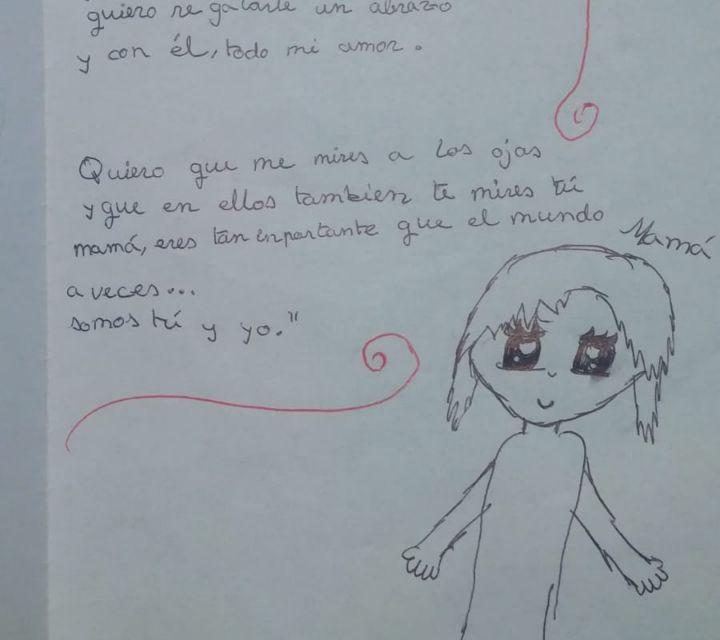 quiero regalarle un abrazo
y con él, todo mi amor.
Quiero que me mires a los ojos
y que en ellos tambien te mires tú
mamá, eres tan inportante que el mundo
a veces...
somos tú y yo."
Mamá